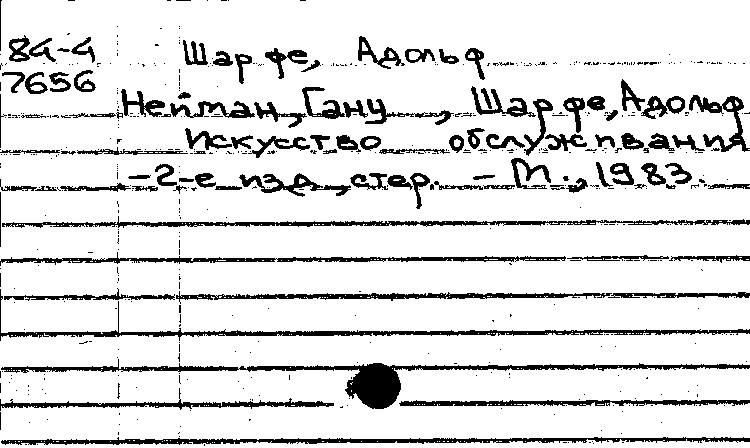 84-4 Шарфе, Адольф
7656
Нейман, Гану, Шарфе, Адольф
Искусство обслуживания
-2-е изд, стер. - М., 1983.